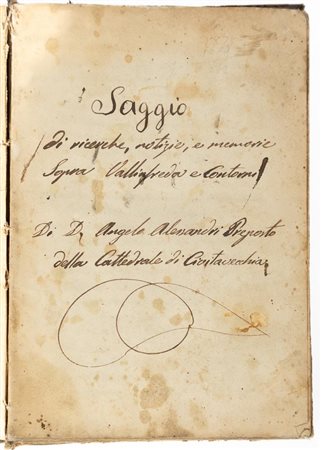 Saggio
di ricerche, notizie, e memorie
Sopra Vallinfreda e Contorni
Di D. Angelo Alesandri Preposto
della Cattedrale di Civitavecchia